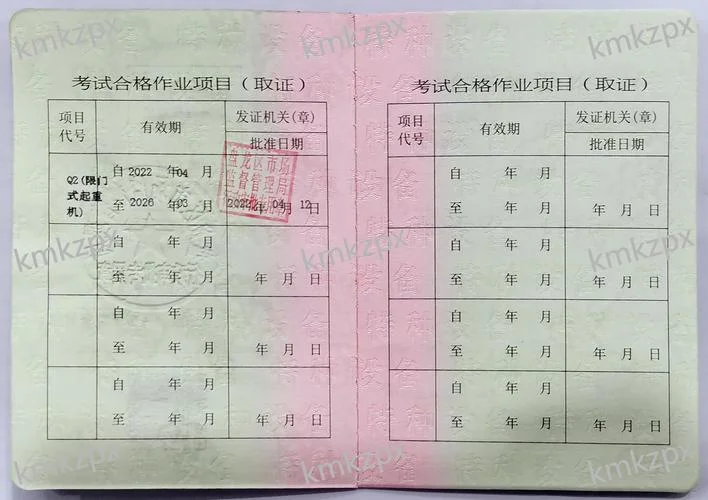 kmkzpx kmkzpx kmkzpx
考试合格作业项目（取证）
项目代号 有效期 发证机关(章)
批准日期
Q2(限门式起重机) 自 2022 年 04 月
至 2026 年 03 月 2022 年 04 月 12 日
龙区市场
监督管理局
自 年 月
至 年 月 年 月 日
自 年 月
至 年 月 年 月 日
自 年 月
至 年 月 年 月 日
考试合格作业项目（取证）
项目代号 有效期 发证机关(章)
批准日期
自 年 月
至 年 月 年 月 日
自 年 月
至 年 月 年 月 日
自 年 月
至 年 月 年 月 日
自 年 月
至 年 月 年 月 日
kmkzpx kmkzpx kmkzpx
kmkzpx kmkzpx kmkzpx